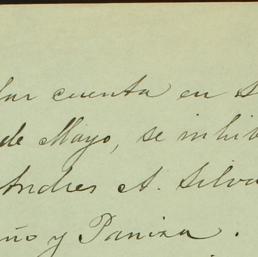 dar cuenta en
de Mayo, se inhib
Andres A. Silva
ño y Paniza.